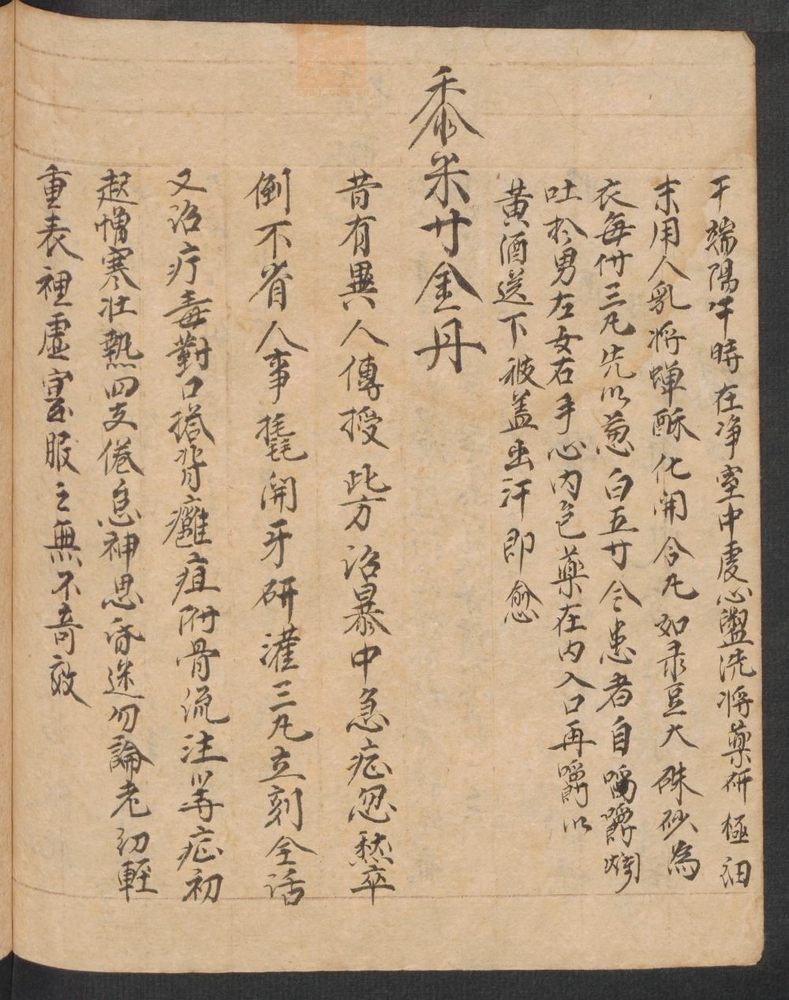 于端陽午時在净室中虔心盥洗將藥研極細
末用人乳將蟬酥化開合凡如彔豆大硃砂為
衣每付三凡先以蔥白五寸令患者自嚼嚼爛
吐扵男左女右手心内包藥在内入口再嚼以
黄酒送下被盖出汗即愈
黍米寸金丹
昔有異人傳授此方治暴中急症忽然卒
倒不省人事撬開牙研灌三凡立刻全活
又治疔毒對口搭背癰疽附骨流注等症初
起憎寒壮熱四支倦怠神思昏迷勿論老幼輕
重表裡虛寔服之無不奇效